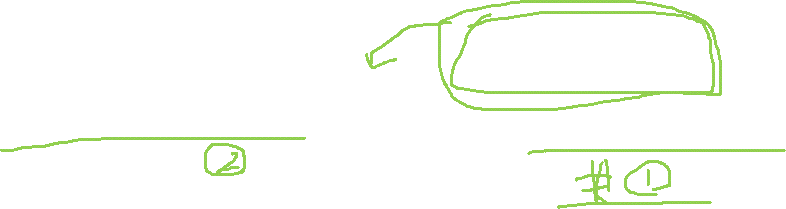 ②
# ①